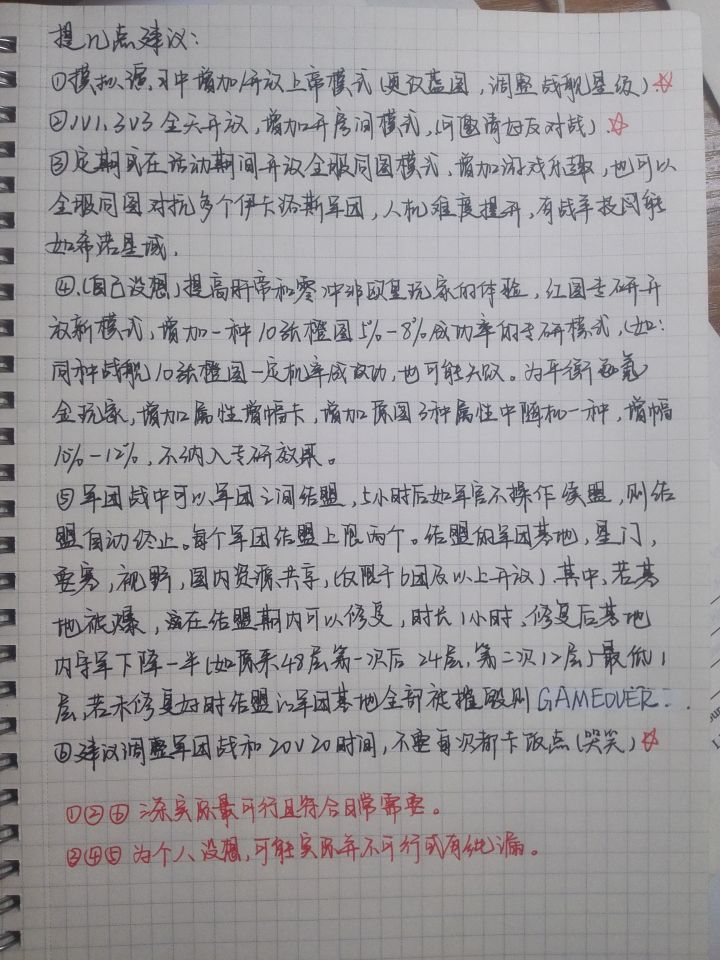 提几点建议:
①模拟演习中增加/开放上帝模式(更改蓝图,调整战舰星级).☆
②1V1.3V3全天开放,增加开房间模式,(可邀请好友对战).☆
③定期或在活动期间开放全服同图模式,增加游戏乐趣,也可以
全服同图对抗多个伊卡洛斯军团,人机难度提升,有战争投网能
如希诺星域.
④.(自己设想)提高肝帝和零冲非欧皇玩家的体验,红图专研开
放新模式,增加一种10张橙图5%-8%成功率的专研模式,(如:
同种战舰10张橙图一定机率成功,也可能失败。为平衡氪
金玩家,增加属性增幅卡,增加原图3种属性中随机一种,增幅
10%-12%,不纳入专研效果。
⑤军团战中可以军团之间结盟,5小时后如军官不操作续盟,则结
盟自动终止。每个军团结盟上限两个。结盟的军团基地,星门,
要塞,视野,团内资源共享,(仅限于6团及以上开放).其中,若基
地被爆,该在结盟期内可以修复,时长1小时、修复后基地
内守军下降一半(如原来48层第一次后24层,第二次12层)最低1
层,若未修复好时结盟的军团基地全部被摧毁则GAMEOVER...
⑥建议调整军团战和20V20时间,不要每次都卡饭点(哭笑)☆
①②⑥为实际最可行且符合日常需要。
③④⑤为个人设想,可能实际并不可行或有纰漏。